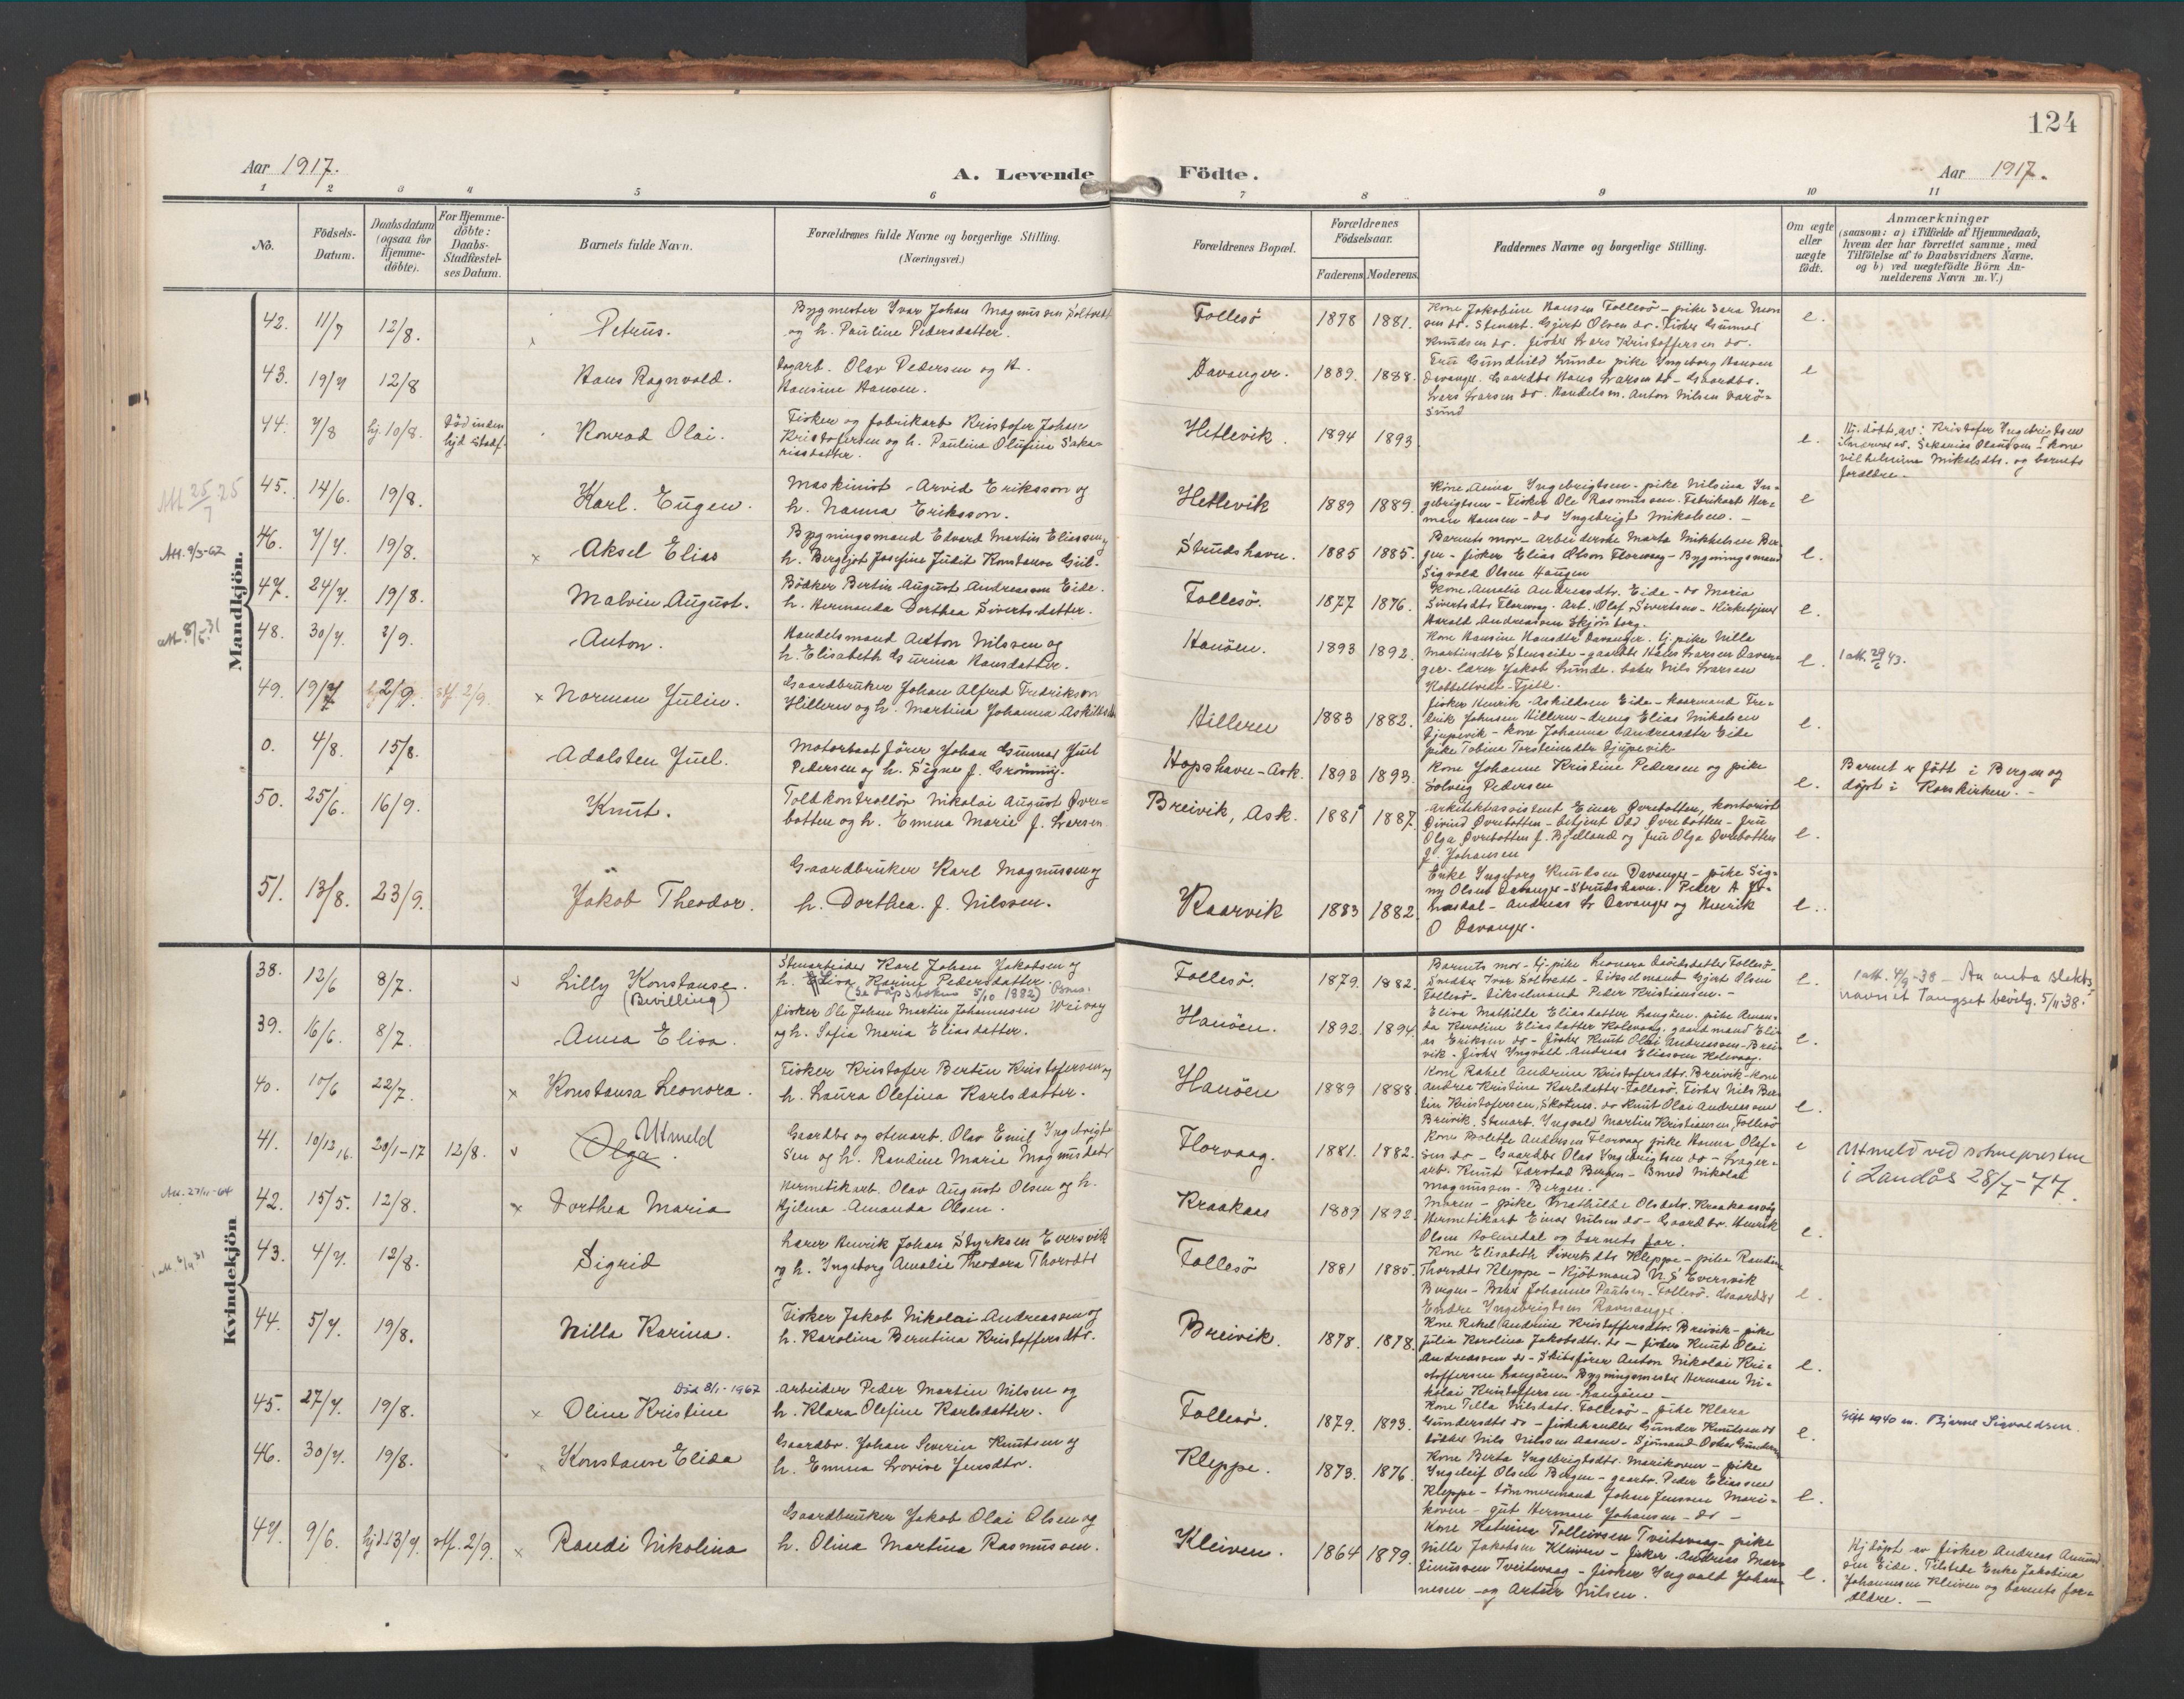 124
Aar 1917.
A. Levende Fødte.
Aar 1917.
1 2 3 4 5 6 7 8 9 10 11
No.
Fødsels-
Datum.
Daabsdatum
(ogsaa for
Hjemme-
døbte).
For Hjemme-
døbte:
Daabs-
Stadfæstel-
ses Datum.
Barnets fulde Navn.
Forældrenes fulde Navne og borgerlige Stilling.
(Næringsvei.)
Forældrenes Bopæl.
Forældrenes
Fødselsaar.
Faderens. Moderens.
Faddernes Navne og borgerlige Stilling.
Om ægte
eller
uægte
født.
Anmærkninger
(saasom: a) i Tilfælde af Hjemmedaab,
hvem der har forrettet samme, med
Tilføielse af to Daabsvidners Navne.
og b) ved uægtefødte Børn An-
melderens Navn m. V.)
Mandkjøn.
42. 11/7 12/8. Petrus.
Bygmester Ivar Johan Magnussen Soltvedt
og h. Pauline Pedersdatter.
Follesö 1878 1881.
Kone Jakobine Hansen Follesö - pike Sara
Stenart. Gjert Olsen do. Fisker Gunnar
Knudsen do. fisker Lars Kristoffersen do.
e.
43. 19/7 12/8 Hans Ragnvald.
Dagarb. Olav Pedersen og H.
Hansine Hansen.
Davanger. 1889. 1888.
Fru Gundhild Lunde pike Ingeborg Hansen
Davanger. Gaardbr. Hans Larsen do - Gaardbr.
Lars Larsen do. Handelsm. Anton Nilsen
sund
e
44. 7/8 hj. 10/8. Död inden
hjd. stadf. Konrad Olai.
Fisker og fabrikarb Kristofer Johan
Kristofersen og h. Paulina Olufine Saka-
riasdatter.
Hetlevik. 1894 1893
e.
Hj. döbt av: Kristofer Ingebrigtsen
Sakarias Olausson - Kone
vilhelmina Mikalsdtr. og barnets
forældre.
Att 25/7 25
45. 14/6. 19/8. Karl. Eugen.
Maskinist Arvid Eriksson og
h. Nanna Eriksson.
Hetlevik 1889 1889.
Kone Anna Ingebrigtsen - pike Nilsina In-
gebrigtsen - Fisker Ole Rasmussen. Fabrikarb Her-
man Hansen - do Ingebrigt Mikalsen. -
e
46. 7/7. 19/8. Aksel Elias
Bygningsmand Edvard Martin Eliassen og
h. Bergljot Josefine Judit Konstanse Gul-
Strudshavn. 1885 1885.
Barnets mor - arbeiderske Marta Mikkelsen Ber-
gen - fisker Elias Olson Florvaag - Bygningsmand
Sigvald Olsen Haugen
e.
47. 24/7. 19/8. Malvin August.
Bödker Bertin August Andreassen Eide.
h. Hermanda Dorthea Sivertsdatter.
Follesö. 1877 1876.
Kone Amalie Andreasdtr. Eide - do Maria
Sivertsdtr Florvaag. Art. Olaf Sivertsens - Kirketjener
Harald Andreassen Skjönborg.
e.
48. 30/7. 2/9. Anton.
Handelsmand Anton Nilssen og
h. Elisabeth Gurina Hansdatter.
Hanöen. 1893 1892.
Kone Hansine Hansdtr Davanger. tj. pike Nilla
Martinsdtr Stenseide - gaardbr Hans Larsen Davan-
ger. lærer Jakob Lunde. baker Nils Larsen
Kobbeltvedt - Fjell.
e.
1 att. 29/6 43.
49. 19/7 2/9. stf 2/9. Norman Julin.
Gaardbruker Johan Alfred Fredrikson
Hilleren og h. Martina Johanna Askildsdtr
Hilleren 1883 1882.
fisker Henrik Askildsen Eide - kaarmand Fre-
drik Johnsen Hilleren - dreng Elias Mikalsen
Djupevik - kone Johanna Andreasdtr Eide
pike Tobina Torsteinsdtr Djupevik
e.
0. 4/8. 15/8. Adalsten Juel.
Motorbaat förer Johan Gunnar Juel
Pedersen og h. Signe f. Grönning.
Hopshavn - Ask. 1893 1893.
Kone Johanne Kristine Pedersen og pike
Solveig Pedersen
e.
Barnet er fött i Bergen og
döpt i Korskirken. -
50. 25/6. 16/9. Knut.
Toldkontrollör Nikolai August Övre-
botten og h. Emma Marie f. Larsen
Breivik, Ask. 1881 1887
Arkitektassistent Einar Övrebotten, kontorist
Öivind Övrebotten - betjent Odd Övrebotten - fru
Olga Övrebotten f. Bjelland og fru Olga Övrebotten
f. Johansen
e.
51. 13/8. 23/9. Jakob Theodor.
Gaardbruker Karl Magnussen og
h. Dorthea. f. Nilssen.
Kaarvik 1883 1882.
Enke Ingeborg Knudsen Davanger - pike Sig-
ny Olsen Davanger - Strudshavn. Peder A
Andreas Davanger og Henrik
O Davanger.
e.
Kvindekjøn
38. 12/6 8/7. Lilly Konstanse.
(Bevilling)
Stenarbeider Karl Johan Jakobsen og
h. Elisa Karine Pedersdatter.
(Se dåpsboken 5/10 1882)
Follesö. 1879. 1882.
Barnets mor - tj. pike Leonora Davidsdatter Follesö -
Snedker Ivar Soltvedt - Fikselmand Gjert Olsen
Follesö - Fikselmand Peder Kristiansen. -
e.
1 att. 4/9 -38 - An anta slekts-
navnet Tangset bevilg. 5/11-38.
39. 16/6. 8/7. Anna Elisa.
Fisker Ole Johan Martin Johannesen
og h. Sofia Maria Eliasdatter.
Hanöen. 1892. 1894.
Elisa Mathilda Eliasdatter Langöen. pike Aman-
da Karoline Eliasdatter Kolevaag. gaardmand Eli-
as Eriksen do - fisker Knut Olai Andreassen - Brei-
vik - fisker Ingvald Andreas Eliassen Kolevaag.
e.
40. 10/6 22/7. Konstansa Leonora.
Fisker Kristofer Bertin Kristofersen og
h. Laura Olefina Karlsdatter.
Hanöen 1889 1888
Kone Rakel Andrine Kristofersdtr. Breivik - kone
Andrea Kristina Karlsdatter - Follesö. Fisker Nils Ber-
tin Kristofersen, Skotnes. do Knut Olai Andreassen
Breivik. Stenart. Ingvald Martin Kristiansen, Follesö
e.
41. 10/12 16. 20/1-17 12/8. Olga. Utmeld
Gaardbr og stenarb. Olav Emil Ingebrigt-
sen og h. Randine Marie Magnusdatr
Florvaag. 1881. 1882.
Kone Bolette Andersen Florvaag pike Hanna Olaf-
sen do - Gaardbr Olav Ingebrigtsen do - Lager-
arb. Knut Farestad Bergen - Bmed Nikolai
Magnussen - Bergen.
e
Utmeld ved soknepresten
i Landås 28/7-77.
42. 15/5. 12/8. Dorthea Maria
Hermetikarb. Olav August Olsen og h.
Hjelma Amanda Olsen.
Kraakaas 1889 1892.
Maren - pike Mathilde Olsdtr. Kraakaas og
Hermetikarb Einar Nilsen do - Gaardbr. Henrik
Olsen Holmedal og barnets far.
e.
43. 4/7. 12/8. Sigrid
Lærer Henrik Johan Styrksen Eversvik
og h. Ingeborg Amalie Theodora Thorsdtr
Follesö 1881 1885.
Kone Elisabeth Sivertsdtr Kleppe - pike Randine
Thorsdtr Kleppe - Kjöbmand N. S. Eversvik
Bergen - Johannes Paulsen - Follesö. Gaardbr
Endre Ingebrigtsen Ravnanger.
e.
44. 5/7. 19/8. Nilla Karina.
Fisker Jakob Nikolai Andreassen og
h. Karolina Berntina Kristoffersdtr.
Breivik. 1878. 1878.
Kone Rakel Andrine Kristoffersdtr. Breivik - pike
Julia Karolina Jakobsdtr. do - fisker Knut Olai
Andreassen do - Skibsförer Anton Nikolai Kri-
stoffersen Langöen. Bygningsmester Herman Ni-
kolai Kristoffersen - Langöen -
e.
45. 27/7. 19/8. Oline Kristine
Död 8/1 - 1967
Arbeider Peder Martin Nilsen og
h. Klara Olefine Karlsdatter.
Follesö. 1879. 1893.
Kone Tilla Nilsdatr. Follesö - pike Klara
Gundersdtr do - fiskehandler Gunder Knutsen do
bödker Nils Nilssen Aasen - Sjömand Oskar
e.
Gift 1940 m. Bjarne Sigvaldsen.
46. 30/7. 19/8. Konstanse Elida
Gaardbr. Johan Severin Knutsen og
h. Emma Lovise Jensdtr.
Kleppe. 1873. 1876.
Kone Berta Ingebrigtsdtr. Marikoven - pike
Ingeleif Olsen Bergen - gaardbr. Peder Eliassen
Kleppe - tömmermand Johan Jenssen Mari-
koven - gut Herman Johansen - do -
e.
47. 9/6. hjd. 13/7. stf. 2/9. Randi Nikolina
Gaardbruker Jakob Olai Olsen og
h. Olina Martina Rasmussen.
Kleiven. 1864 1879.
Kone Katrina Tolleivsen Tveitevaag - pike
Nilla Jakobsen Kleiven - fisker Andreas Mar-
tinussen Tveitevaag - fisker Ingvald Johan-
nesen - og Artur Nilsen.
e.
Hjdöpt av fisker Andreas
sen Eide. Tilstede Enke Jakobina
Johannesen Kleiven og barnets for-
ældre. -